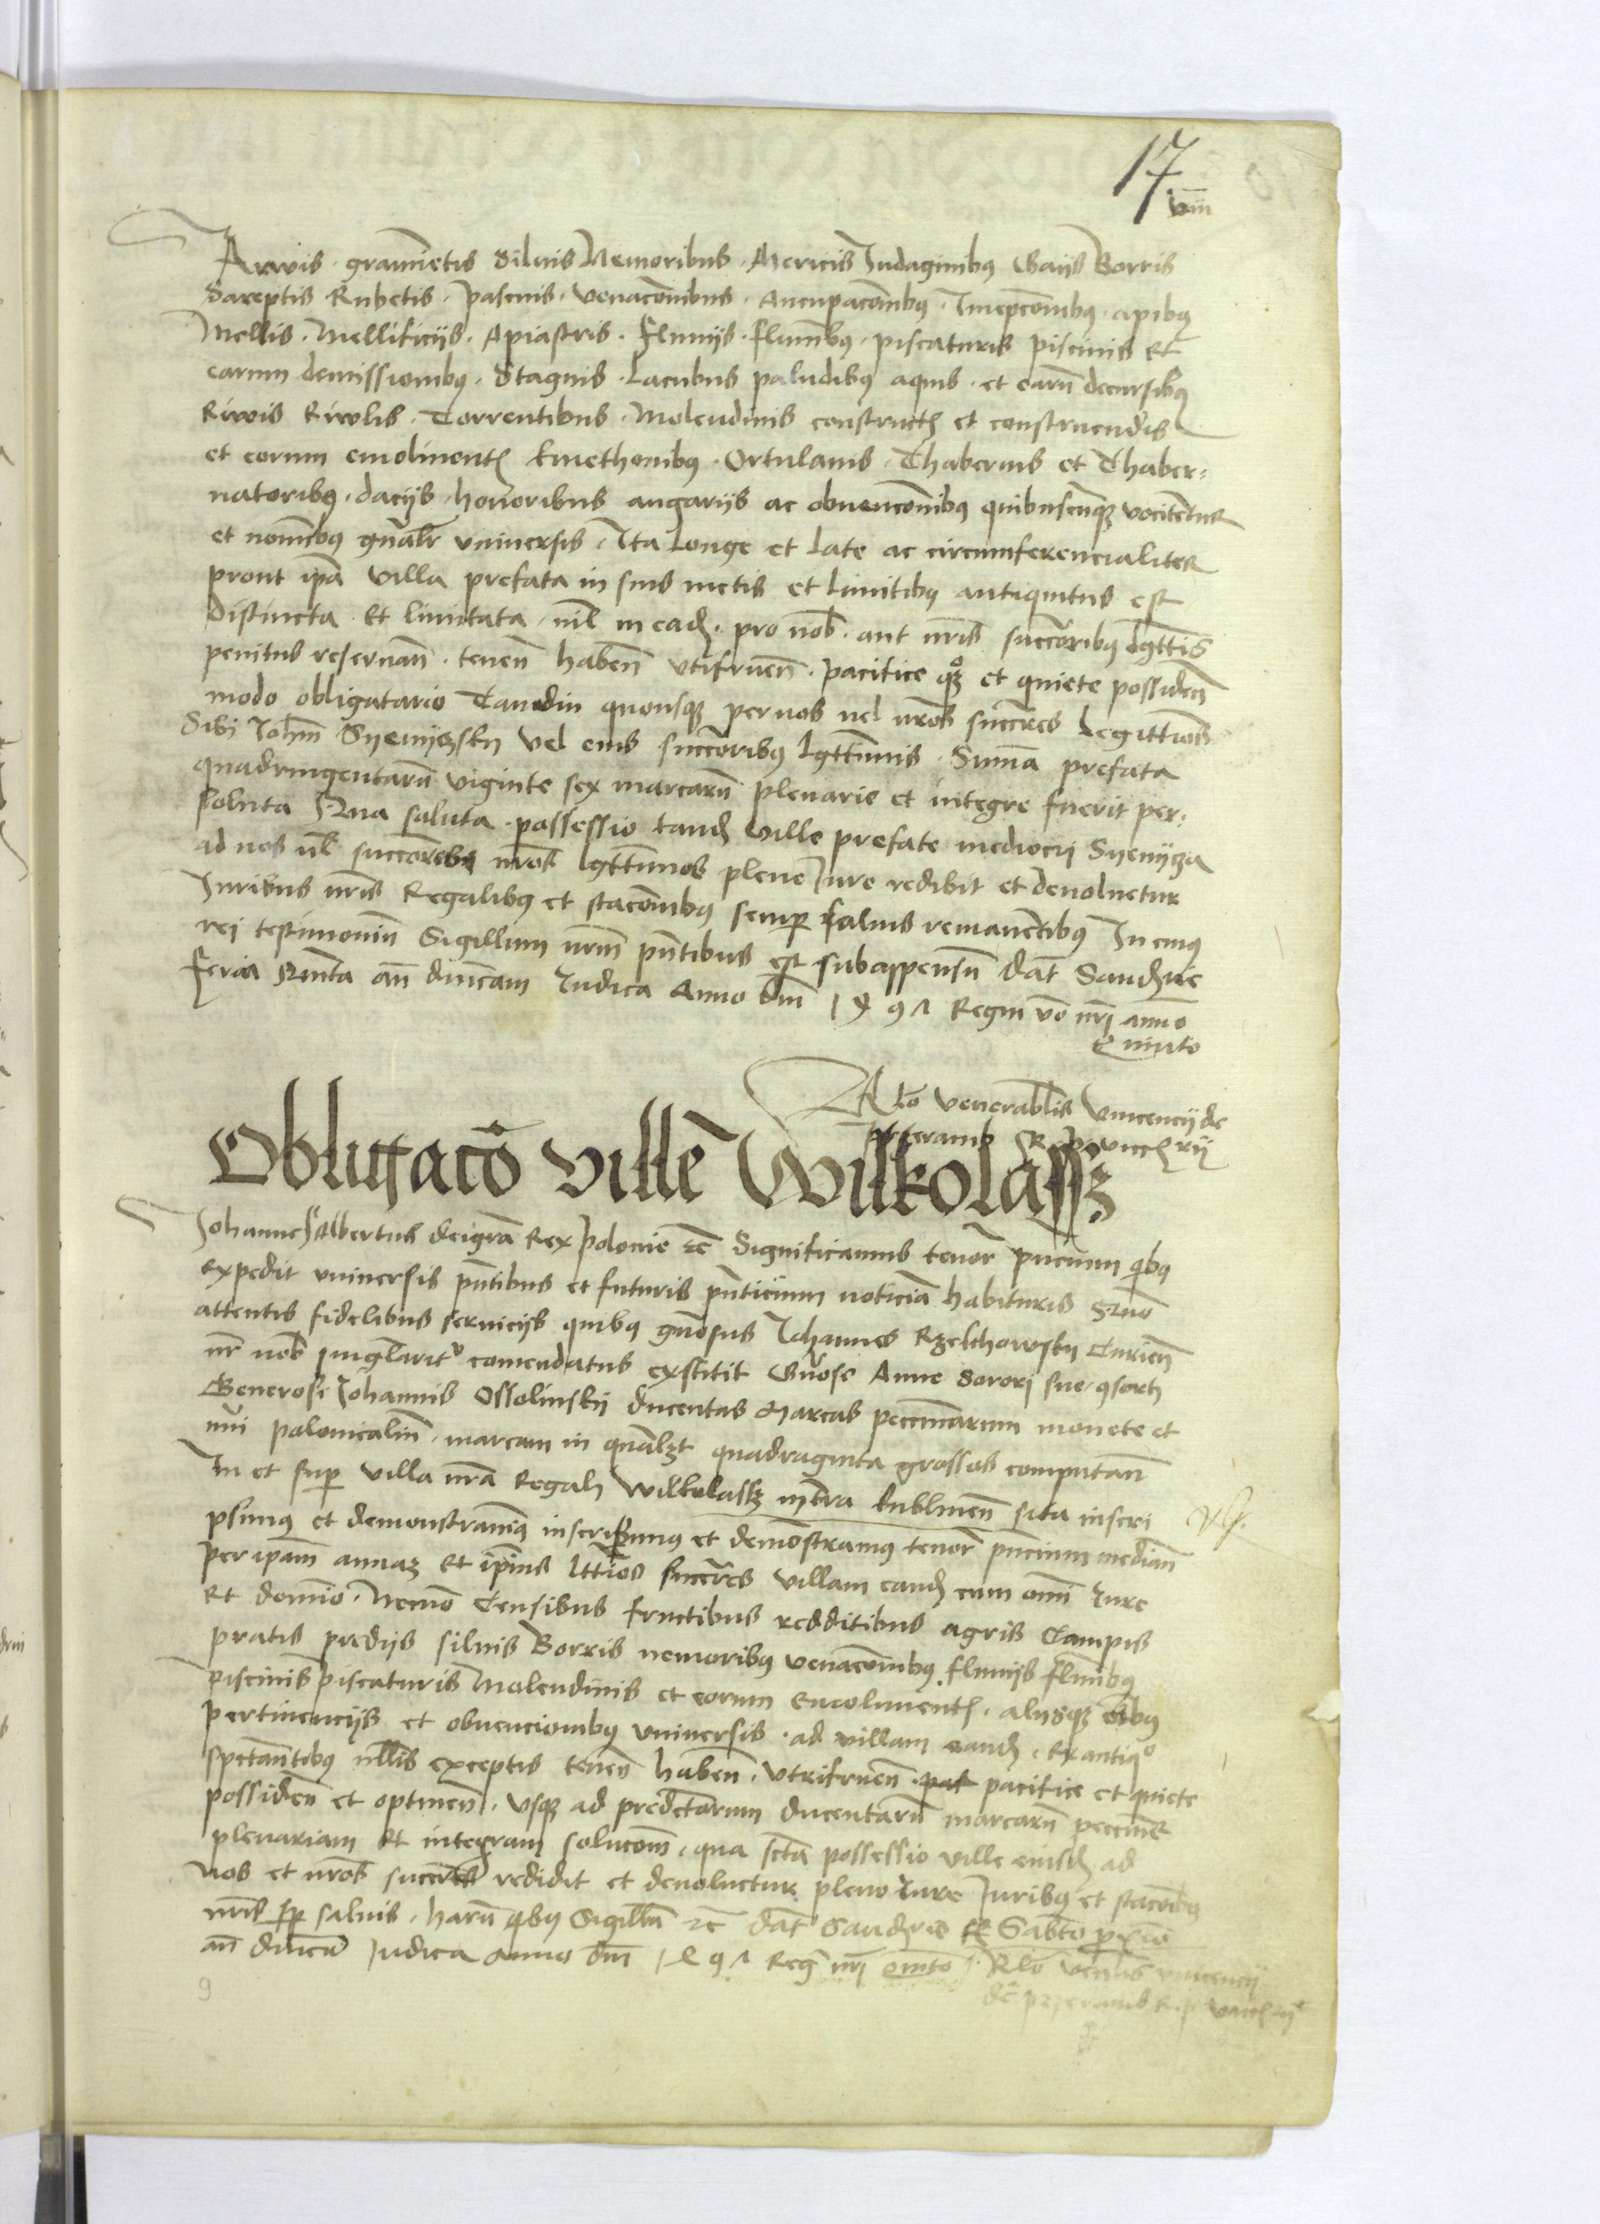 17
viii
Arvis · gramietis Silvis Nemoribus · Mericis Indaginibus Gaijs Borris
Sareptis Rubetis · pascuis · venacōnibus · Aucupacōnibus · apibus
Mellis · Mellificijs · Apiastris · fluvijs · flumībus · piscaturis piscinis et
earum demissionibus · Stagnis · Lacubus paludibus aquis · et earū decursibus
Rivis Rivulis · Torrentibus · Molendinis construct et construendis
et eorum emoliment kmethonibus · Ortulanis · Thabernis et Thaber-
natoribus · dacijs · honoribus angarijs ac obvencōnibus quibuscunque vocitentur
et nomībus gnāliter universis · Ita Longe et Late ac circumferencialiter
prout ipā villa prefata in suis metis et Limitibus antiquitus est
Distincta et limitata · nil in eadem · pro nob · aut nris succoribus
penitus reservan · tenen haben utifruen · pacifice et quiete possiden
modo obligatario Tamdiu quousque per nos vel nros succres Legittimos
Sibi Johan Syenyczsky vel eius succoribus lgttimis · Summa prefata
quadringentarū viginte sex marcarū plenarie et integre fuerit per-
soluta Qua soluta · possessio eiusdem ville prefate mediocri Syenycza
ad nos vel succores nros lgttimos pleno Iure redibit et devolvetur
Iuribus nris Regalibus et stacōnibus semper salvis remanentibus In cuius
rei testimonium Sigillum nrm pntibus est subappensum Dat Sandzne
feria Quinta an dnicam Iudica Anno dni 1497 Regni vo nri anno
Quinto
Rlo venerablis vincencij de
przeramb R p vicecancrij
Obligacō ville Wilkolassz
Johannes Albertus dei gra Rex polonie etc Significamus tenor pncium quibus
expedit universis pntibus et futuris pnticium noticiā habituris Quo
attentis fidelibus servicijs quibus gnosus Johannes Rzelchowsky Curien
nr nob singlarit comendatus exstitit Gnose Anne Sorori sue consorti
Generosi Johannis Ossolinskij ducentas Marcas pecuniarum monete et
nui polonicalium · marcam in qualzt quadraginta grossos computan
In et super villa nra Regali Wilkolassz in tra lublinen sita inscri
psimus et demonstramus inscribimus et demonstramus tenor pncium median
per ipam annaz et ipius lttimos succres villam eand cum omi Iure
et domio · Necnon Censibus fructibus redditibus agris Campis
pratis predijs silvis Borris nemoribus venacōnibus fluvijs flumībus
piscinis piscaturis Molendinis et eorum emolument · alijsque oībus
pertinencijs et obvencionibus universis · ad villam eand · ex antiquo
spectantibus nullis exceptis tenen haben · utifruen · pacifice et quiete
possiden et optinen · usque ad predctarum ducentarū marcarū pecunie
plenariam et integram solucom · qua scta possessio ville eiusdem ad
nos et nros succres redidit et devoluetur pleno Iure Iuribus et stacōibus
nris semp salvis · harū quibus Sigillum etc Dat Sandzne Sabato proximo
an dnicā Iudica anno dni 1497 Regni nri quinto · Rlo venlis vincencij
de przeramb R · p vicecrij
9